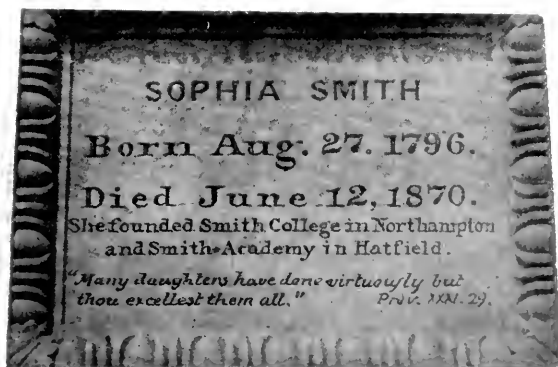 SOPHIA SMITH
Born Aug. 27. 1796.
Died June 12, 1870.
She founded Smith College in Northampton
and Smith Academy in Hatfield.
"Many daughters have done virtuously but
thou excellest them all." Prov. XXXI. 29.